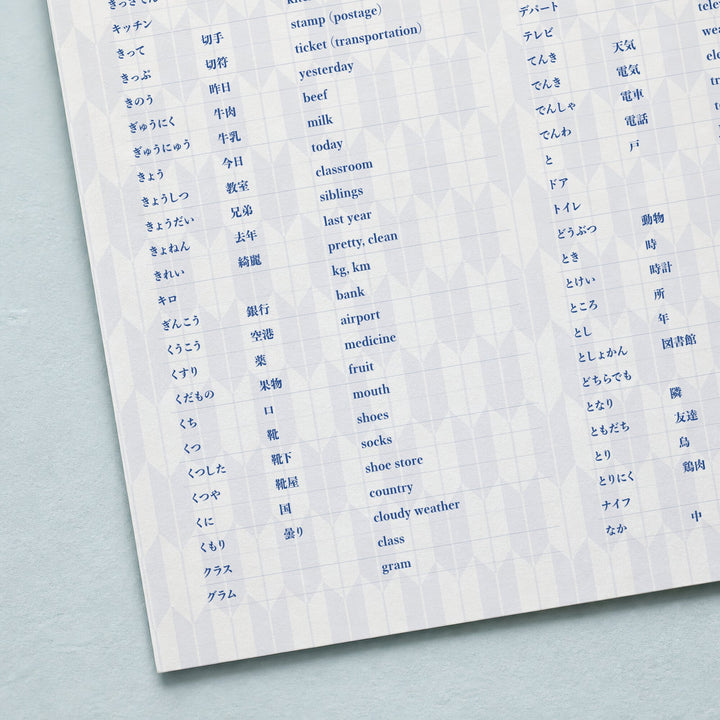 キッチン
きって 切手 stamp (postage)
きっぷ 切符 ticket (transportation)
きのう 昨日 yesterday
ぎゅうにく 牛肉 beef
ぎゅうにゅう 牛乳 milk
きょう 今日 today
きょうしつ 教室 classroom
きょうだい 兄弟 siblings
きょねん 去年 last year
きれい 綺麗 pretty, clean
キロ kg, km
ぎんこう 銀行 bank
くうこう 空港 airport
くすり 薬 medicine
くだもの 果物 fruit
くち 口 mouth
くつ 靴 shoes
くつした 靴下 socks
くつや 靴屋 shoe store
くに 国 country
くもり 曇り cloudy weather
クラス class
グラム gram
デパート
テレビ
てんき 天気
でんき 電気
でんしゃ 電車
でんわ 電話
と 戸
ドア
トイレ
どうぶつ 動物
とき 時
とけい 時計
ところ 所
とし 年
としょかん 図書館
どちらでも
となり 隣
ともだち 友達
とり 鳥
とりにく 鶏肉
ナイフ
なか 中